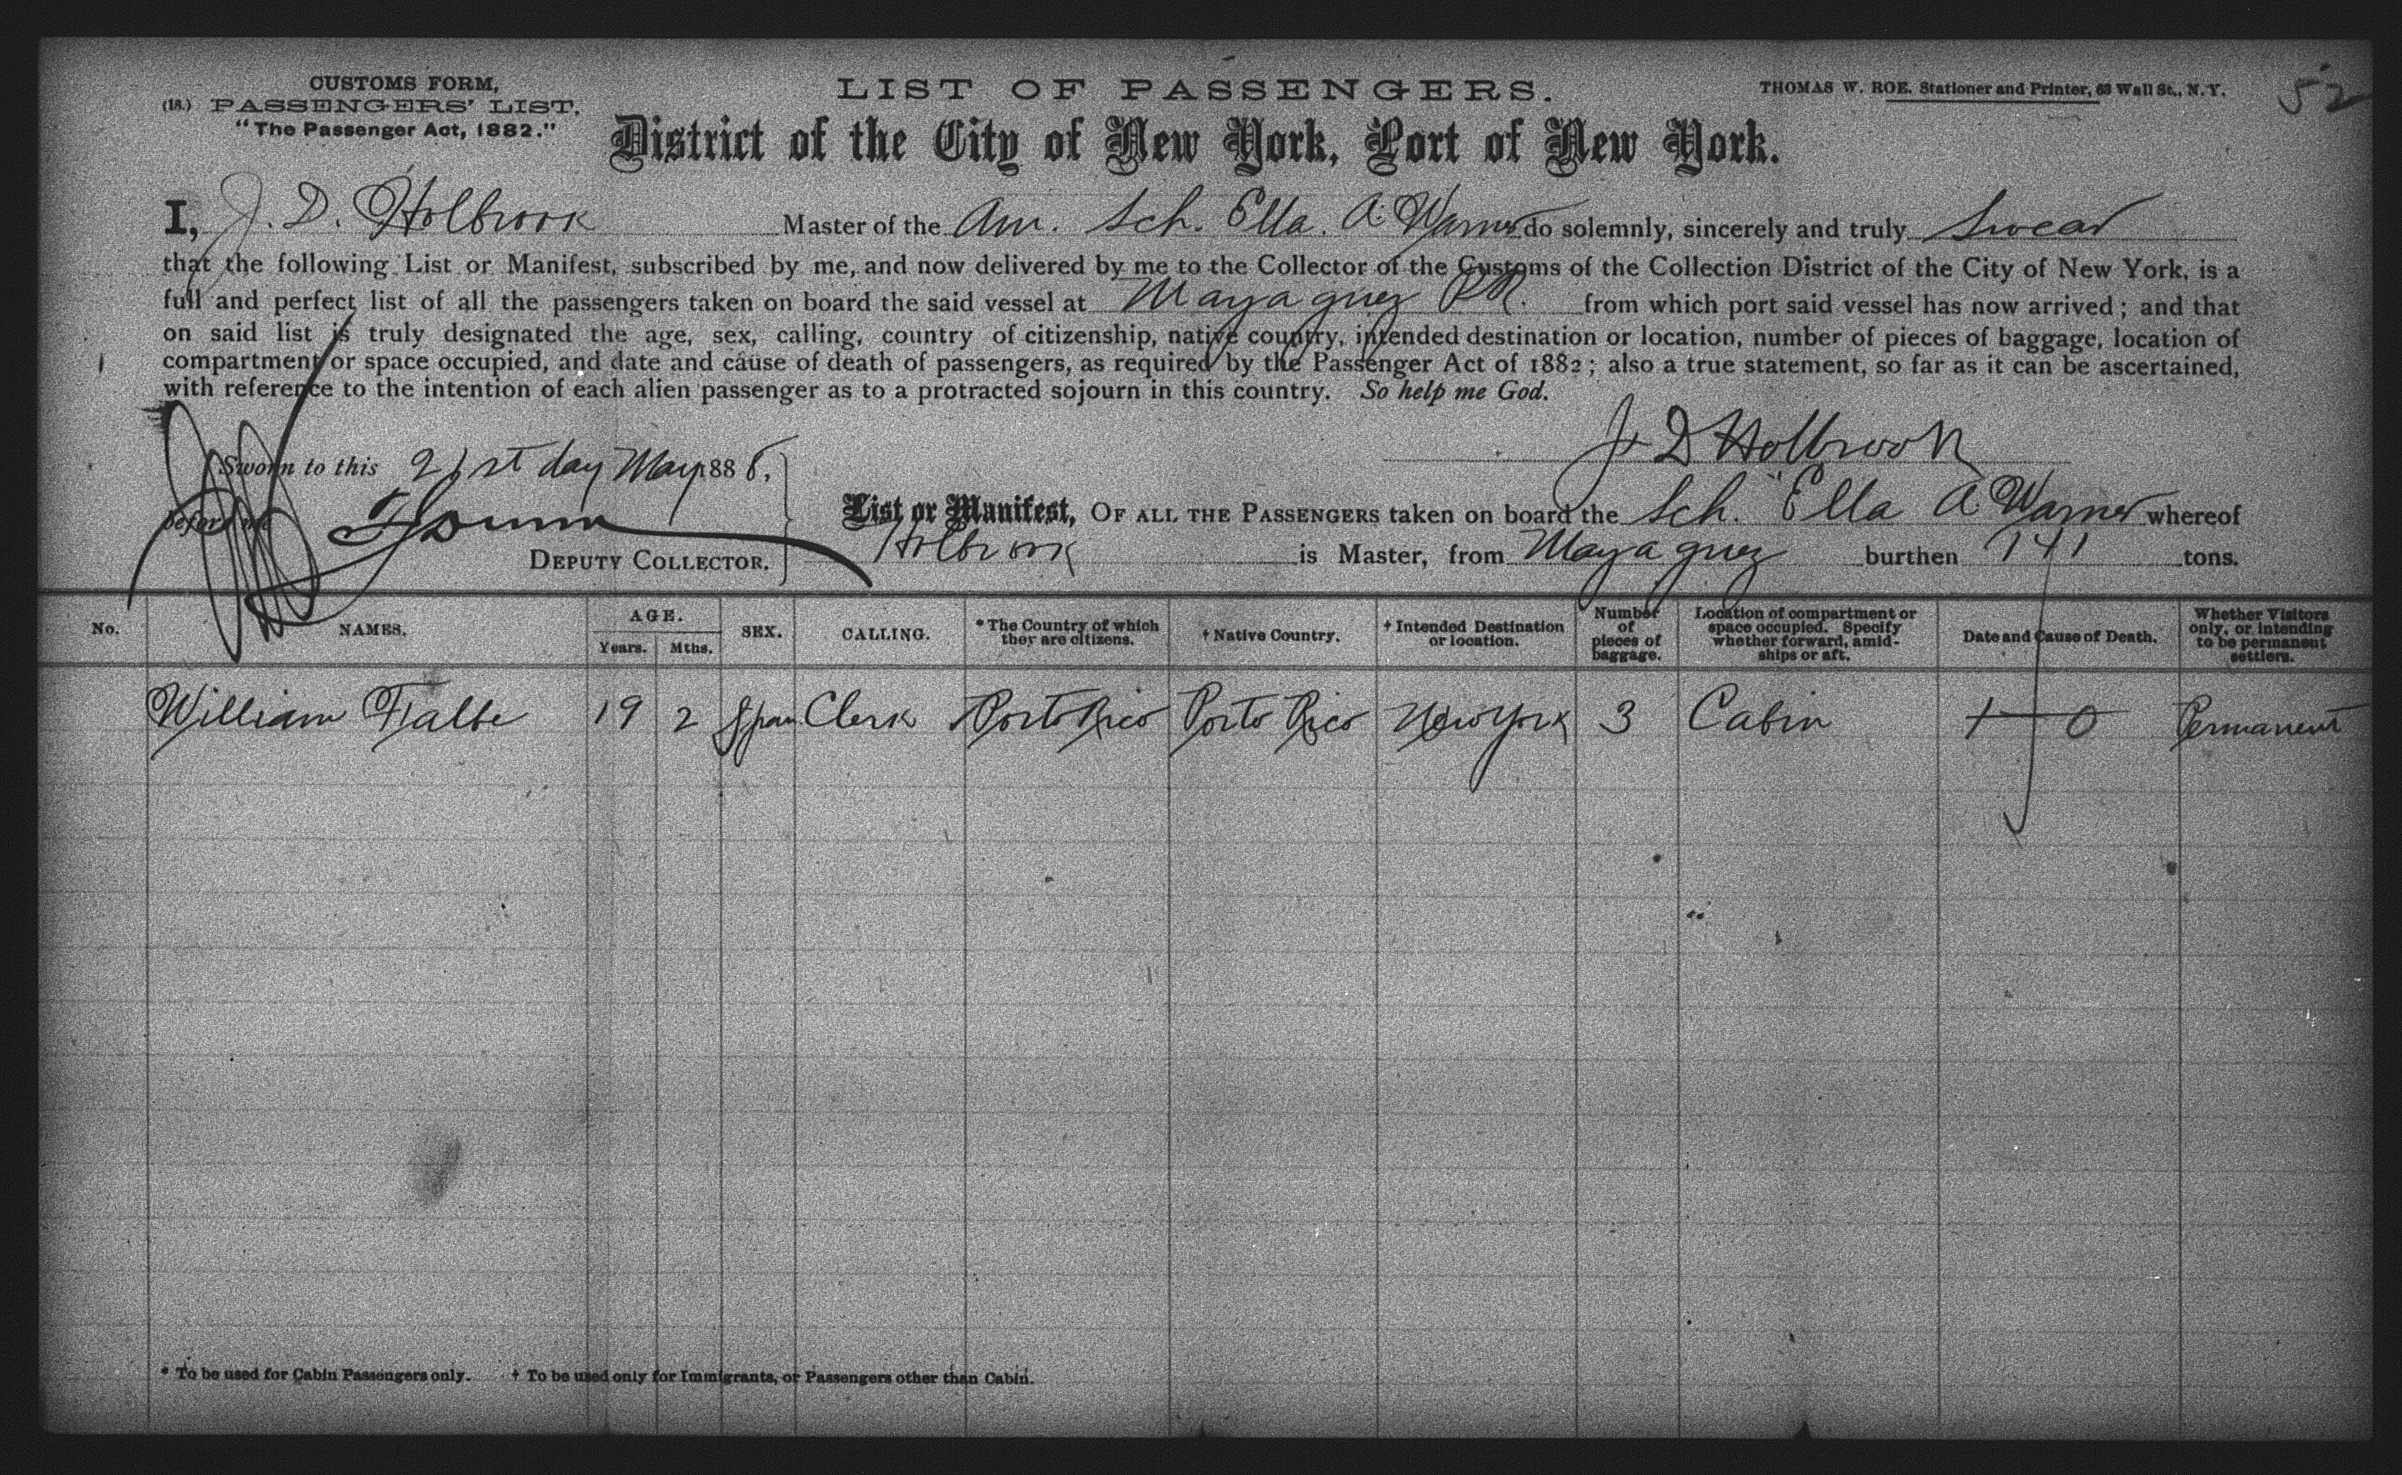 CUSTOMS FORM,
(18.) PASSENGERS' LIST.
"The Passenger Act, 1882."
LIST OF PASSENGERS.
THOMAS W. ROE, Stationer and Printer, 63 Wall St., N.Y.
52
District of the City of New York, Port of New York.
I, J. D. Holbrook Master of the Am. Sch. Ella. A. Warner do solemnly, sincerely and truly Swear
that the following List or Manifest, subscribed by me, and now delivered by me to the Collector of the Customs of the Collection District of the City of New York, is a
full and perfect list of all the passengers taken on board the said vessel at Mayaguez P.R. from which port said vessel has now arrived; and that
on said list is truly designated the age, sex, calling, country of citizenship, native country, intended destination or location, number of pieces of baggage, location of
compartment or space occupied, and date and cause of death of passengers, as required by the Passenger Act of 1882; also a true statement, so far as it can be ascertained,
with reference to the intention of each alien passenger as to a protracted sojourn in this country. So help me God.
J D Holbrook
Sworn to this 21st day May 1886,
before me
DEPUTY COLLECTOR.
List or Manifest, OF ALL THE PASSENGERS taken on board the Sch. "Ella A Warner whereof
Holbrook is Master, from Mayaguez burthen 141 tons.
No. NAMES. AGE. Years. Mths. SEX. CALLING. * The Country of which they are citizens. † Native Country. † Intended Destination or location. Number of pieces of baggage. Location of compartment or space occupied. Specify whether forward, amidships or aft. Date and Cause of Death. Whether Visitors only, or intending to be permanent settlers.
William Falbe 19 2 Span. Clerk Porto Rico Porto Rico New York 3 Cabin 1 0 Permanent
* To be used for Cabin Passengers only. † To be used only for Immigrants, or Passengers other than Cabin.